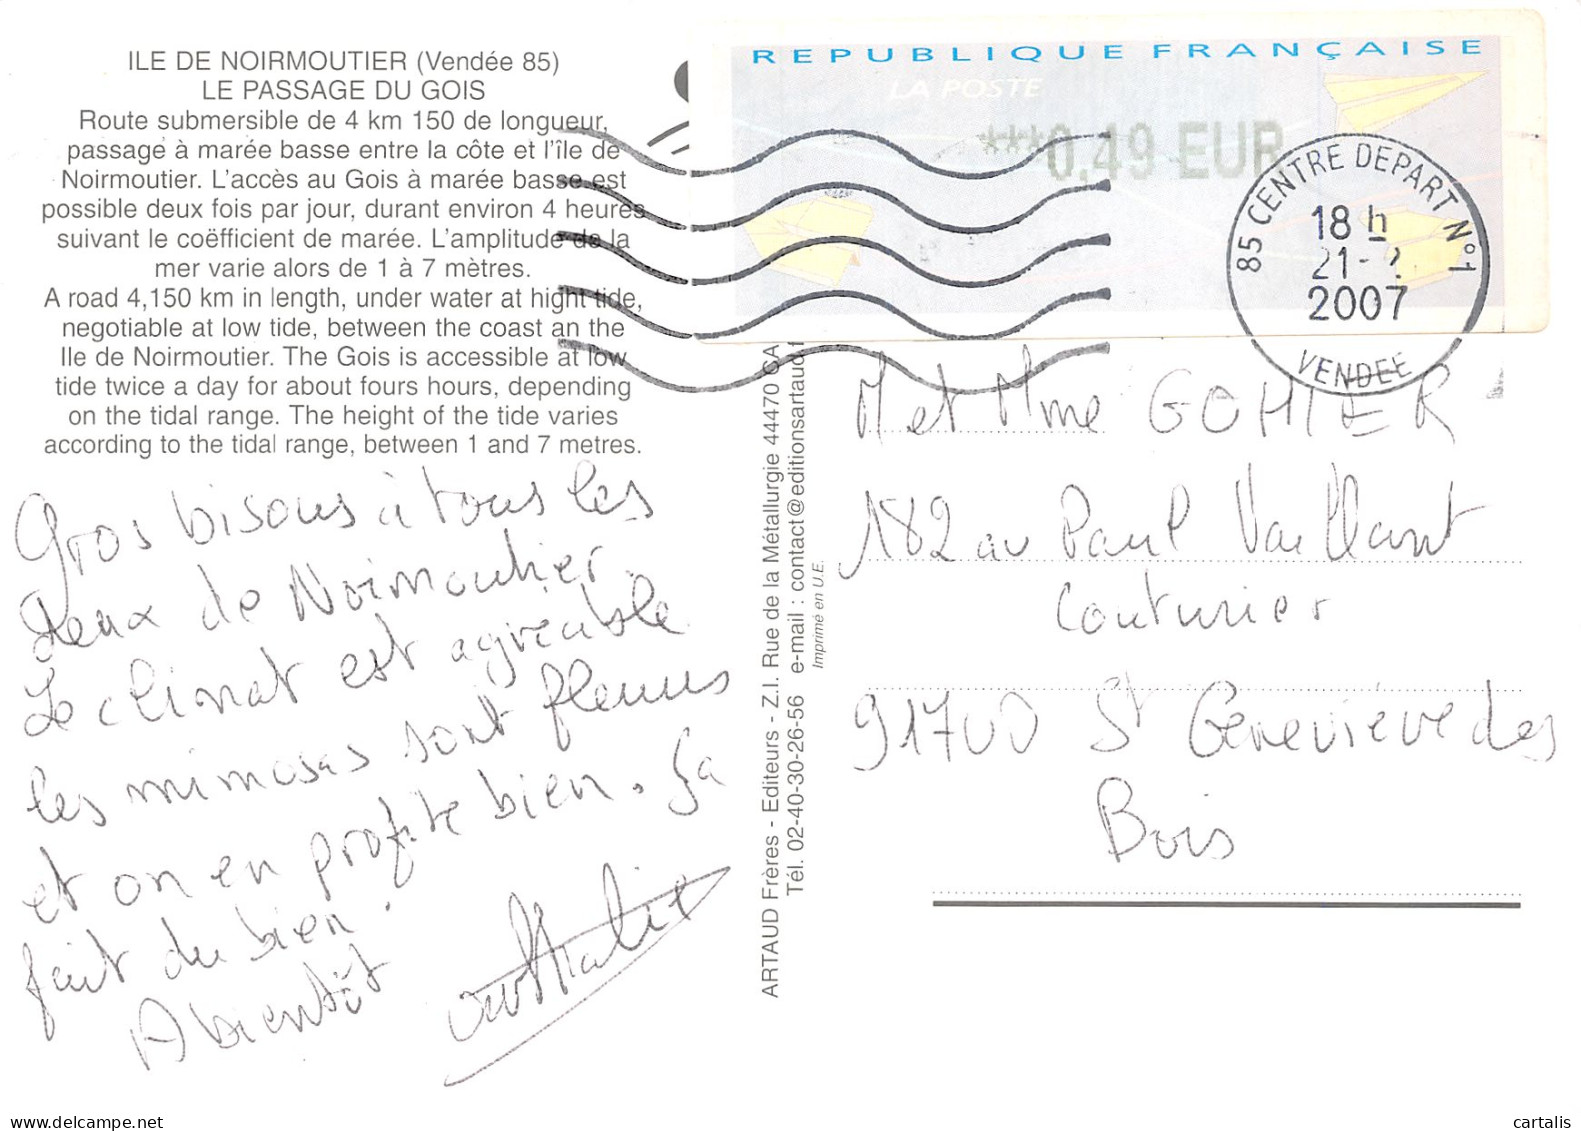 ILE DE NOIRMOUTIER (Vendée 85)
LE PASSAGE DU GOIS
Route submersible de 4 km 150 de longueur,
passage à marée basse entre la côte et l'île de
Noirmoutier. L'accès au Gois à marée basse est
possible deux fois par jour, durant environ 4 heures
suivant le coëfficient de marée. L'amplitude de la
mer varie alors de 1 à 7 mètres.
A road 4,150 km in length, under water at hight tide,
negotiable at low tide, between the coast an the
Ile de Noirmoutier. The Gois is accessible at low
tide twice a day for about fours hours, depending
on the tidal range. The height of the tide varies
according to the tidal range, between 1 and 7 metres.
Gros bisous à tous les
deux de Noirmoutier.
Le climat est agréable
les mimosas sont fleuris
et on en profite bien. ça
fait du bien.
A bientôt
ARTAUD Frères - Editeurs - Z.I. Rue de la Métallurgie 44470 CA
Tél. 02-40-30-26-56 e-mail : contact@editionsartaud.
Imprimé en U.E.
REPUBLIQUE FRANÇAISE
LA POSTE
***0,49 EUR
85 CENTRE DEPART N°1
18 h
21-2
2007
VENDEE
M et Mme GOHIER
182 av Paul Vaillant
Couturier
91700 St Geneviève des
Bois
delcampe.net
cartalis